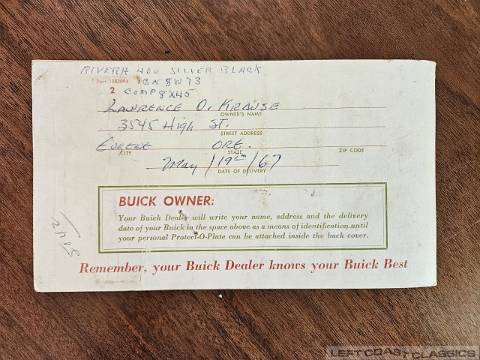 RIVERA 400 SILVER BLACK
2 COMP 8X45
LAWRENCE D. KRAUSE
OWNER'S NAME
3545 High ST.
STREET ADDRESS
EUGENE ORE.
CITY STATE ZIP CODE
May /19th/67
DATE OF DELIVERY
BUICK OWNER:
Your Buick Dealer will write your name, address and the delivery
date of your Buick in the space above as a means of identification until
your personal Protect-O-Plate can be attached inside the back cover.
Remember, your Buick Dealer knows your Buick Best
LEFT COAST CLASSICS